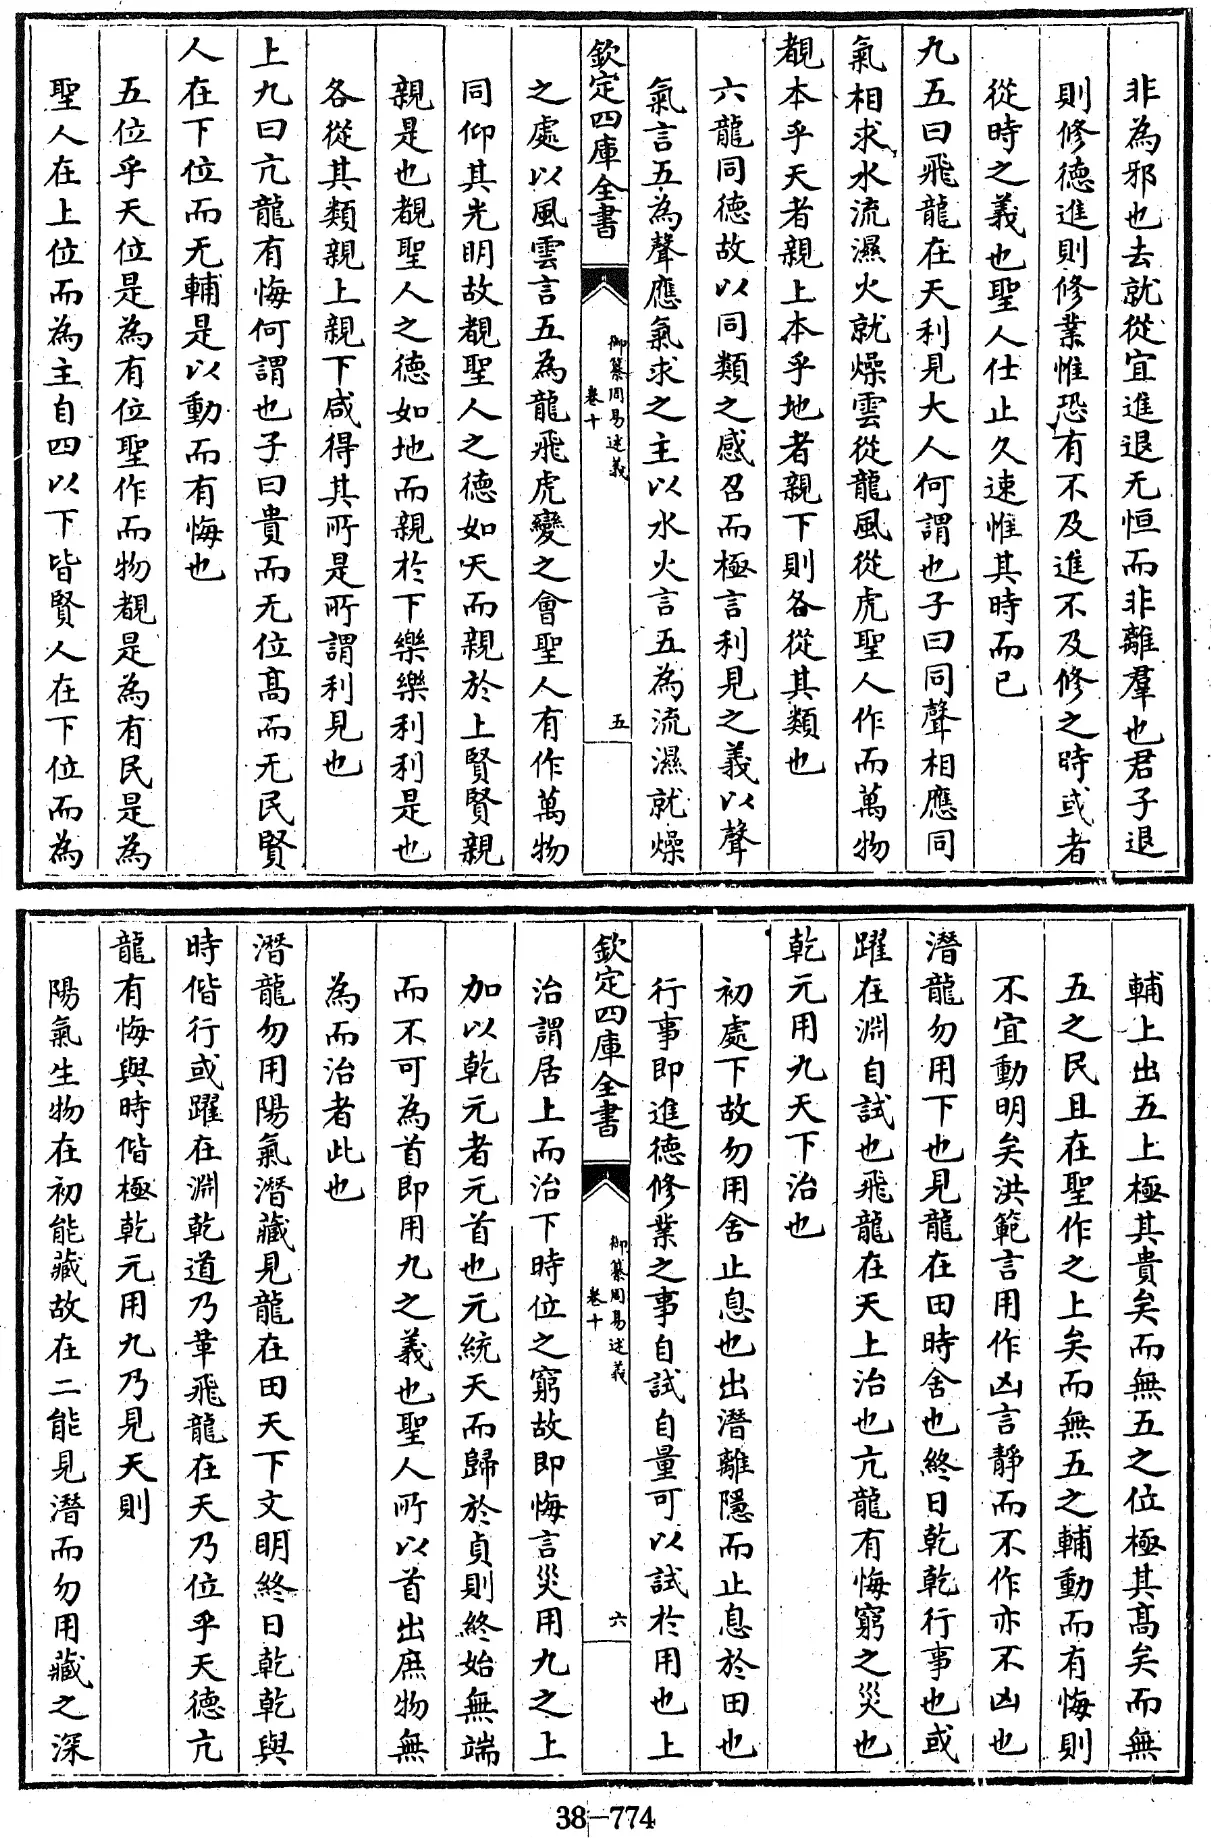 非為邪也去就從宜進退无恒而非離羣也君子退
則修德進則修業惟恐有不及進不及修之時或者
從時之義也聖人仕止久速惟其時而已
九五曰飛龍在天利見大人何謂也子曰同聲相應同
氣相求水流濕火就燥雲從龍風從虎聖人作而萬物
覩本乎天者親上本乎地者親下則各從其類也
六龍同德故以同類之感召而極言利見之義以聲
氣言五為聲應氣求之主以水火言五為流濕就燥
欽定四庫全書
御纂周易述義
卷十
五
之處以風雲言五為龍飛虎變之會聖人有作萬物
同仰其光明故覩聖人之德如天而親於上賢賢親
親是也覩聖人之德如地而親於下樂樂利利是也
各從其類親上親下咸得其所是所謂利見也
上九曰亢龍有悔何謂也子曰貴而无位髙而无民賢
人在下位而无輔是以動而有悔也
五位乎天位是為有位聖作而物覩是為有民是為
聖人在上位而為主自四以下皆賢人在下位而為
輔上出五上極其貴矣而無五之位極其髙矣而無
五之民且在聖作之上矣而無五之輔動而有悔則
不宜動明矣洪範言用作凶言靜而不作亦不凶也
潛龍勿用下也見龍在田時舍也終日乾乾行事也或
躍在淵自試也飛龍在天上治也亢龍有悔窮之災也
乾元用九天下治也
初處下故勿用舍止息也出潛離隱而止息於田也
行事即進德修業之事自試自量可以試於用也上
欽定四庫全書
御纂周易述義
卷十
六
治謂居上而治下時位之窮故即悔言災用九之上
加以乾元者元首也元統天而歸於貞則終始無端
而不可為首即用九之義也聖人所以首出庶物無
為而治者此也
潛龍勿用陽氣潛藏見龍在田天下文明終日乾乾與
時偕行或躍在淵乾道乃革飛龍在天乃位乎天德亢
龍有悔與時偕極乾元用九乃見天則
陽氣生物在初能藏故在二能見潛而勿用藏之深
38-774